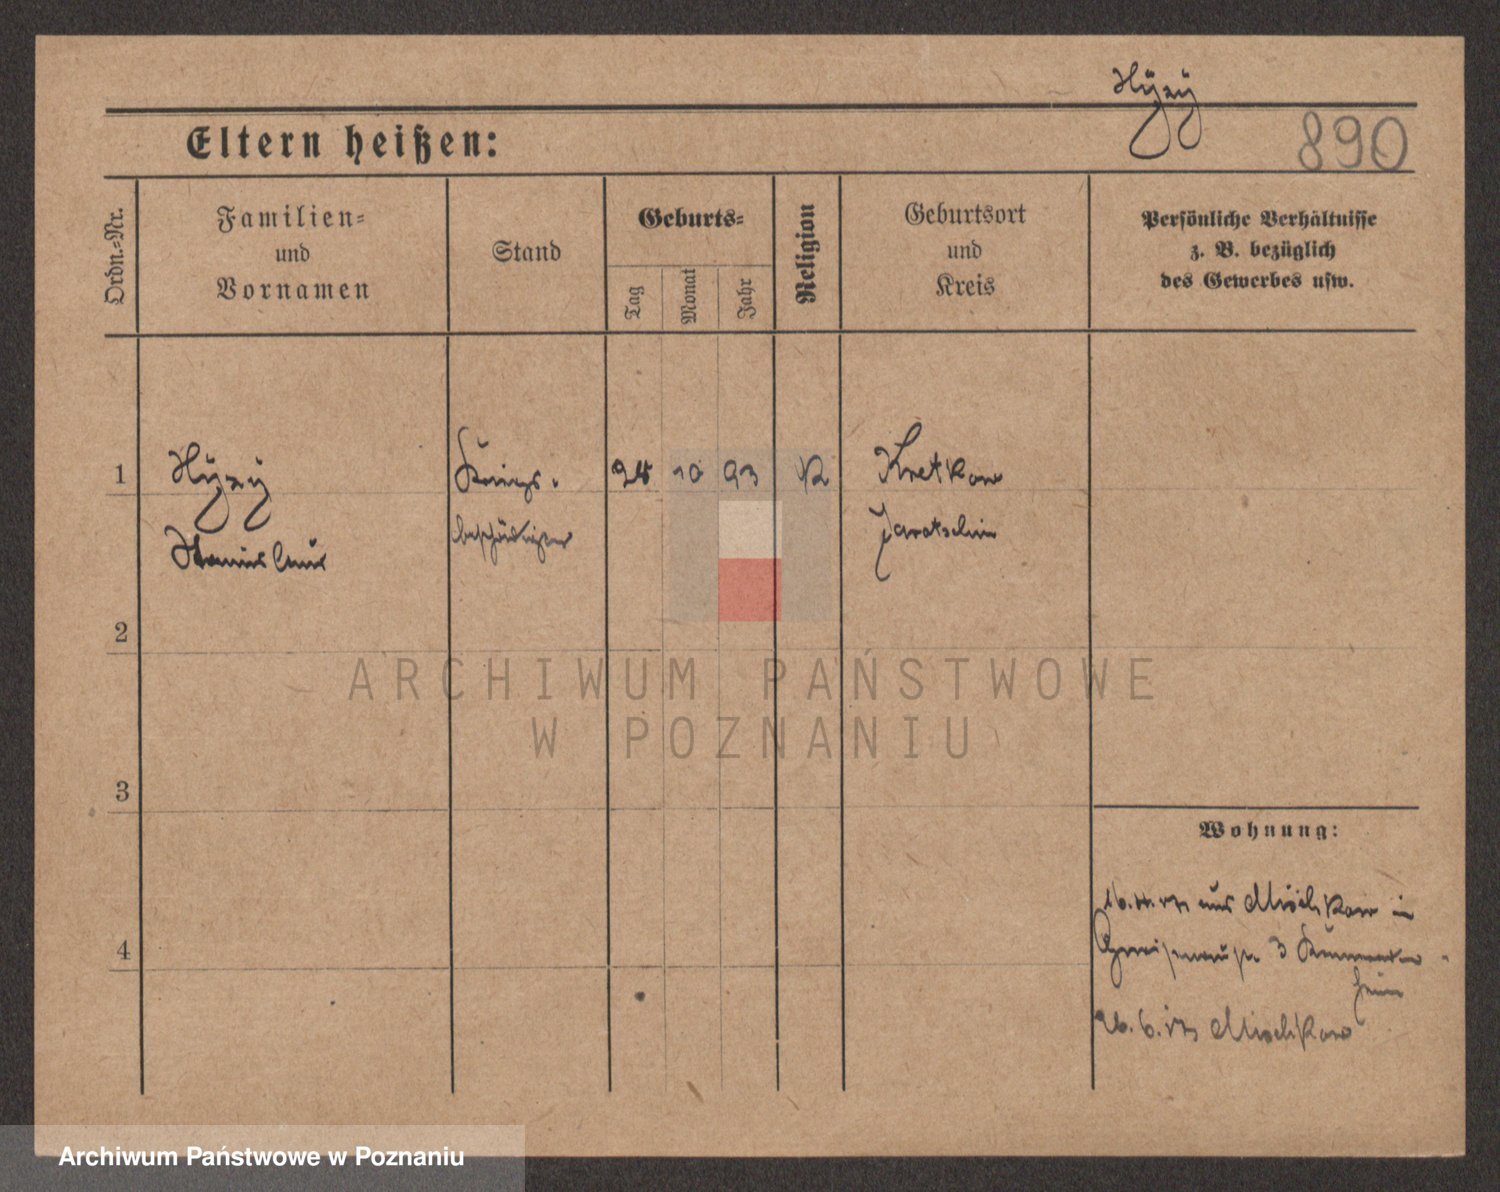 Hyzy
Eltern heißen:
890
Ordn.-Nr.
Familien-
und
Vornamen
Stand
Geburts-
Tag
Monat
Jahr
Religion
Geburtsort
und
Kreis
Persönliche Verhältnisse
z. B. bezüglich
des Gewerbes usw.
1
Hÿzÿ
Kriegs-
10 93
K
Kretkow
Stanislaus
beschädigter
Jarotschin
2
ARCHIWUM PAŃSTWOWE
W POZNANIU
3
Wohnung:
aus Mischkow in
4
3
heim
26. 6. 17 Mischkow
Archiwum Państwowe w Poznaniu